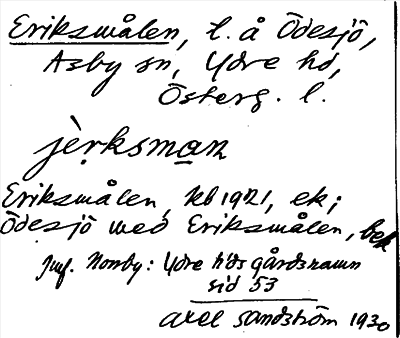 Eriksmålen, l. å Ödesjö,
Asby sn, Ydre hd,
Österg. l.
jèrksman
Eriksmålen, kb 1921, ek;
Ödesjö med Eriksmålen, bek
Jmf. Norrby: Ydre hds gårdsnamn
sid 53
Axel Sandström 1930